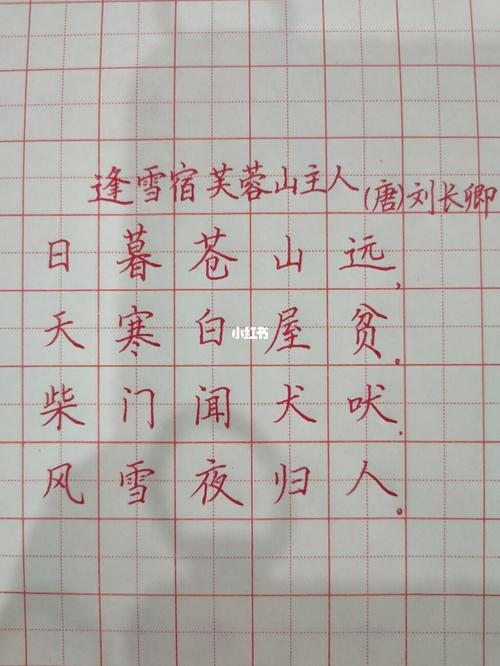 逢雪宿芙蓉山主人
(唐)刘长卿
日暮苍山远,
天寒白屋贫。
小红书
柴门闻犬吠.
风雪夜归人。